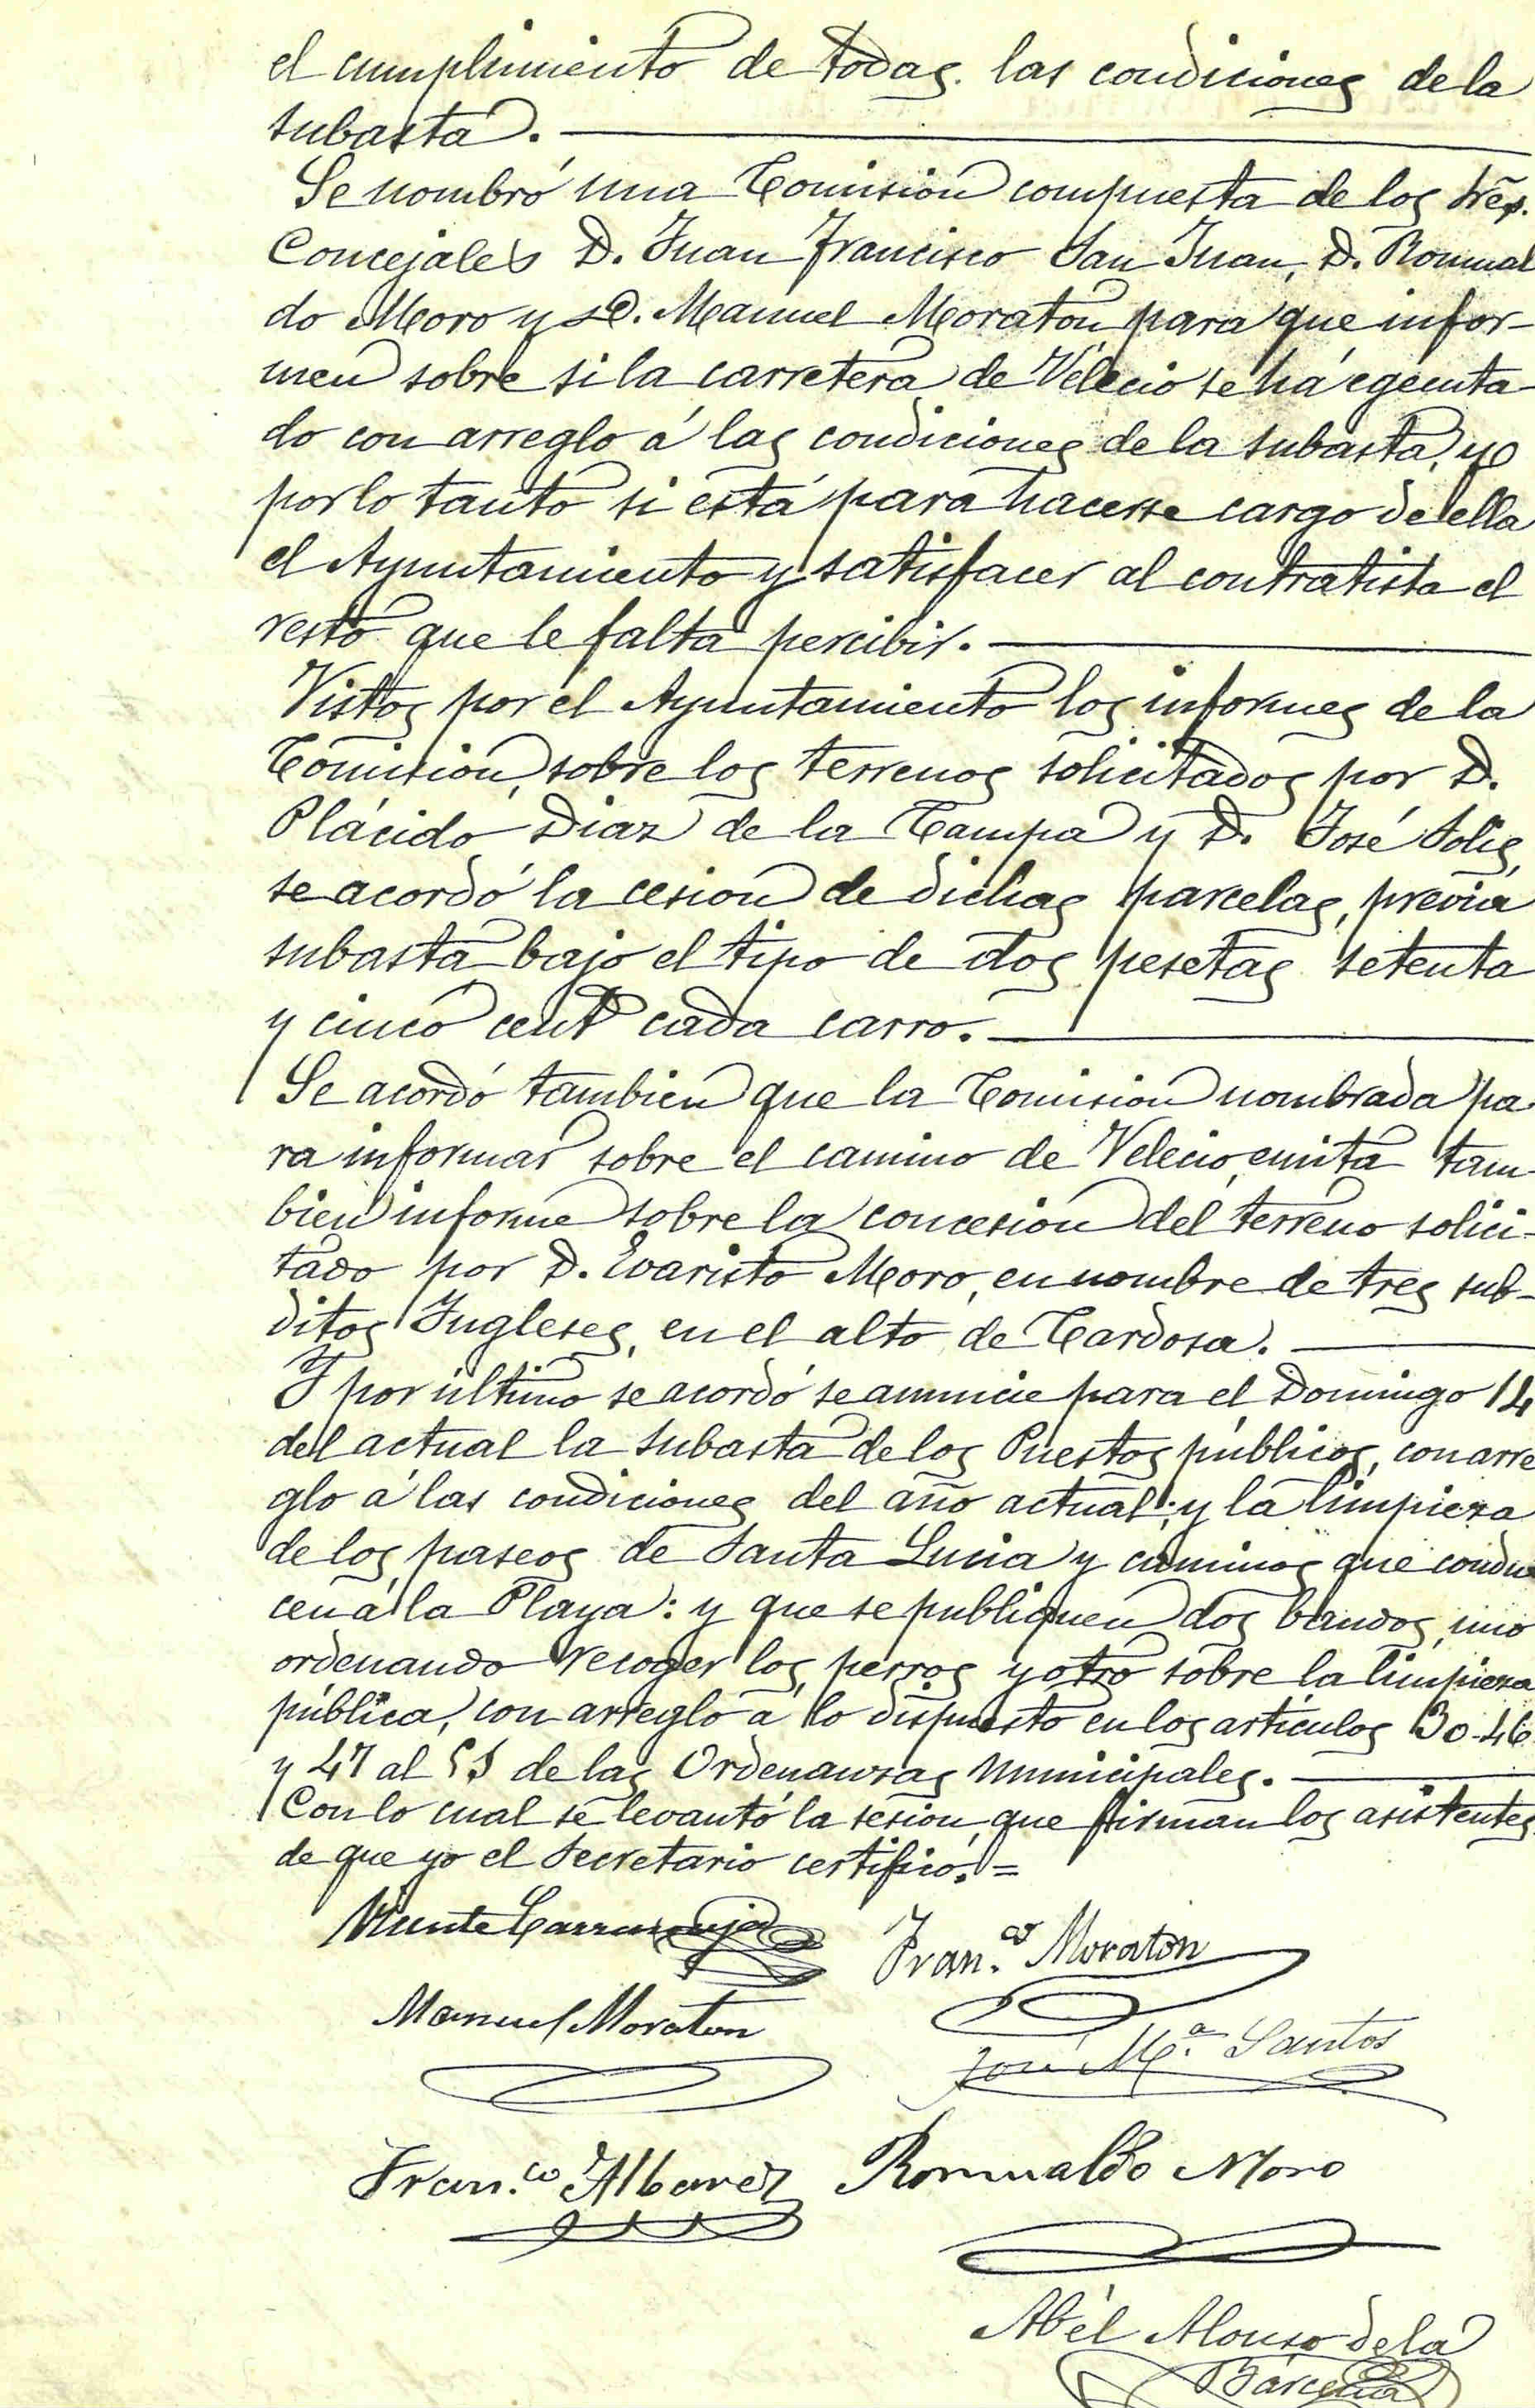 el cumplimiento de todas las condiciones de la
subasta.
Se nombró una Comision compuesta de los Sres.
Concejales D. Juan Francisco San Juan, D. Romual
do Moro y D. Manuel Moraton para que infor-
men sobre si la carretera de Velecio se há egecuta-
do con arreglo á las condiciones de la subasta, y
por lo tanto si está para hacerse cargo de ella
el Ayuntamiento y satisfacer al contratista el
resto que le falta percibir.
Vistos por el Ayuntamiento los informes de la
Comision, sobre los terrenos solicitados por D.
Plácido Diaz de la Campa y D. José Solis,
se acordó la cesion de dichas parcelas, previa
subasta bajo el tipo de dos pesetas setenta
y cinco cents cada carro.
Se acordó tambien que la Comision nombrada pa-
ra informar sobre el camino de Velecio, emita tam-
bien informe sobre la concesion del terreno solici-
tado por D. Evaristo Moro, en nombre de tres sub-
ditos Ingleses, en el alto de Cardosa.
Y por último se acordó se anuncie para el Domingo 14
del actual la subasta de los Puestos públicos, con arre
glo á las condiciones del año actual; y la limpieza
de los paseos de Santa Lucia y caminos que condu
cen á la Playa: y que se publiquen dos bandos, uno
ordenando recoger los perros y otro sobre la limpieza
pública, con arreglo a lo dispuesto en los artículos 30-46
y 47 al 55 de las Ordenanzas Municipales.
Con lo cual se levantó la sesion, que firman los asistentes
de que yo el Secretario certifico. =
Vicente
Fran.co Moraton
Manuel Moraton
José M.a Santos
Fran.co Albarez
Romualdo Moro
Abél Alonso de la
Bárcena